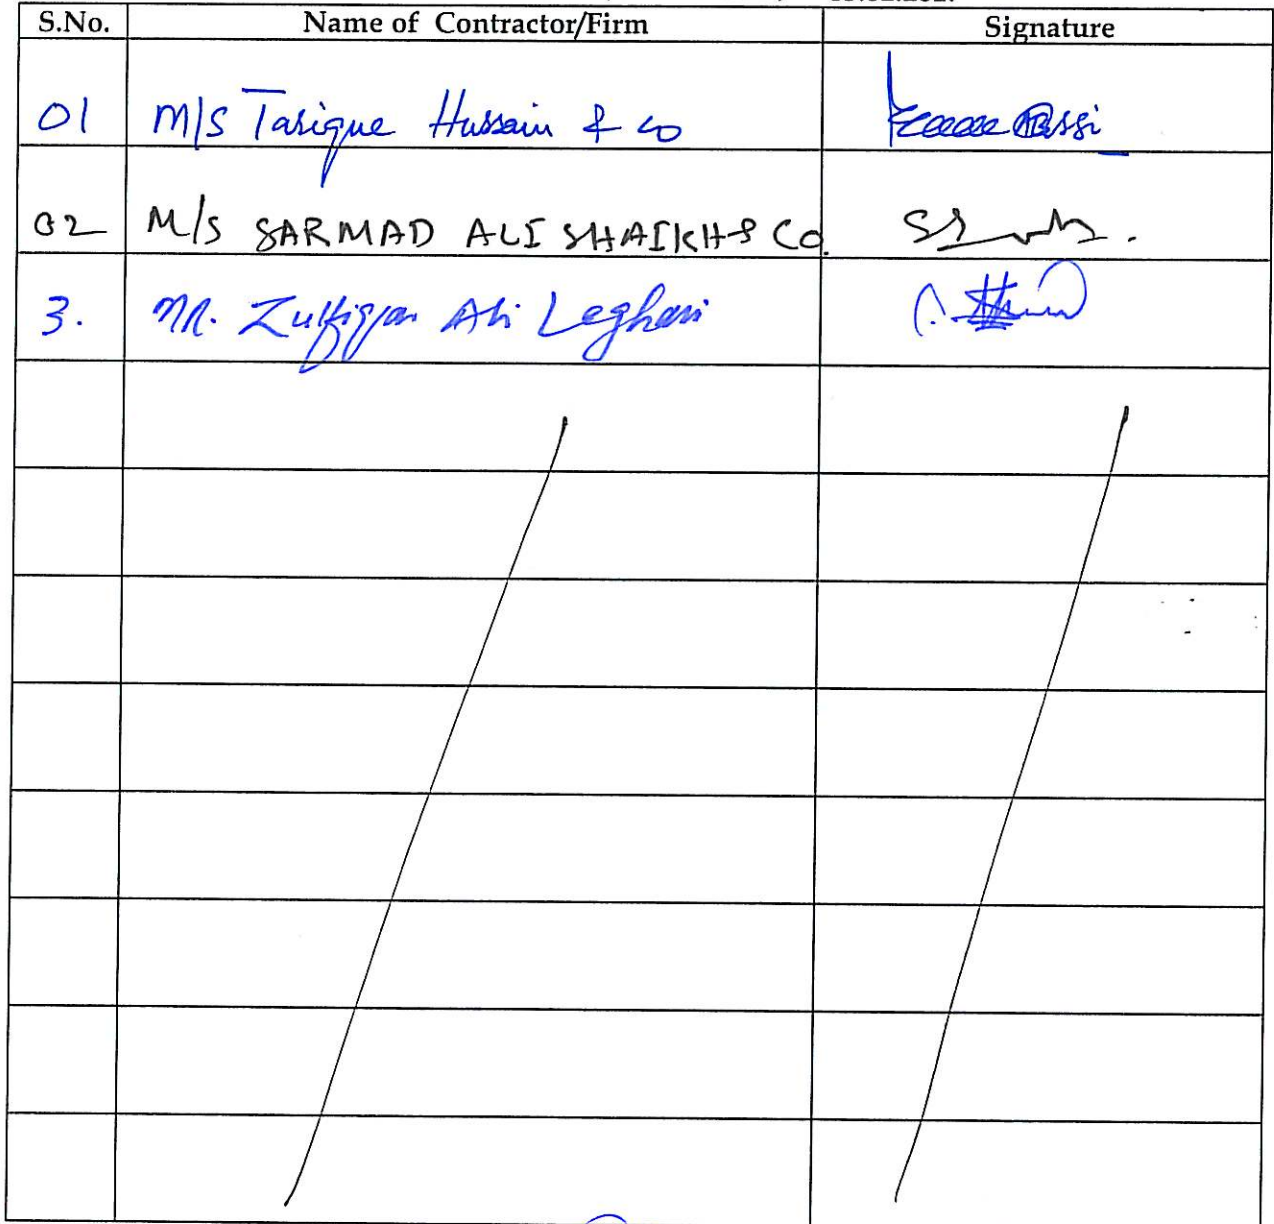 S.No. Name of Contractor/Firm Signature
01 M/S Tarique Hussain & Co
02 M/S SARMAD ALI SHAIKH & Co.
3. Mr. Zulfiqar Ali Leghari